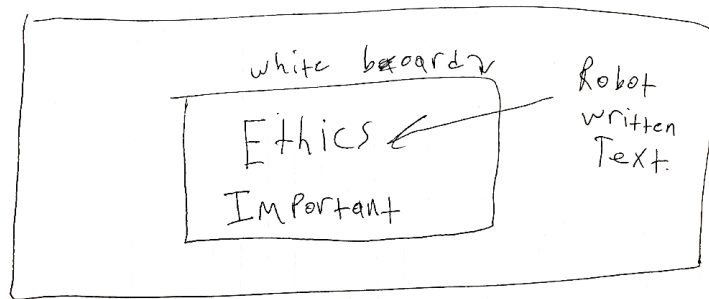 white board
Ethics
Important
Robot
written
Text.